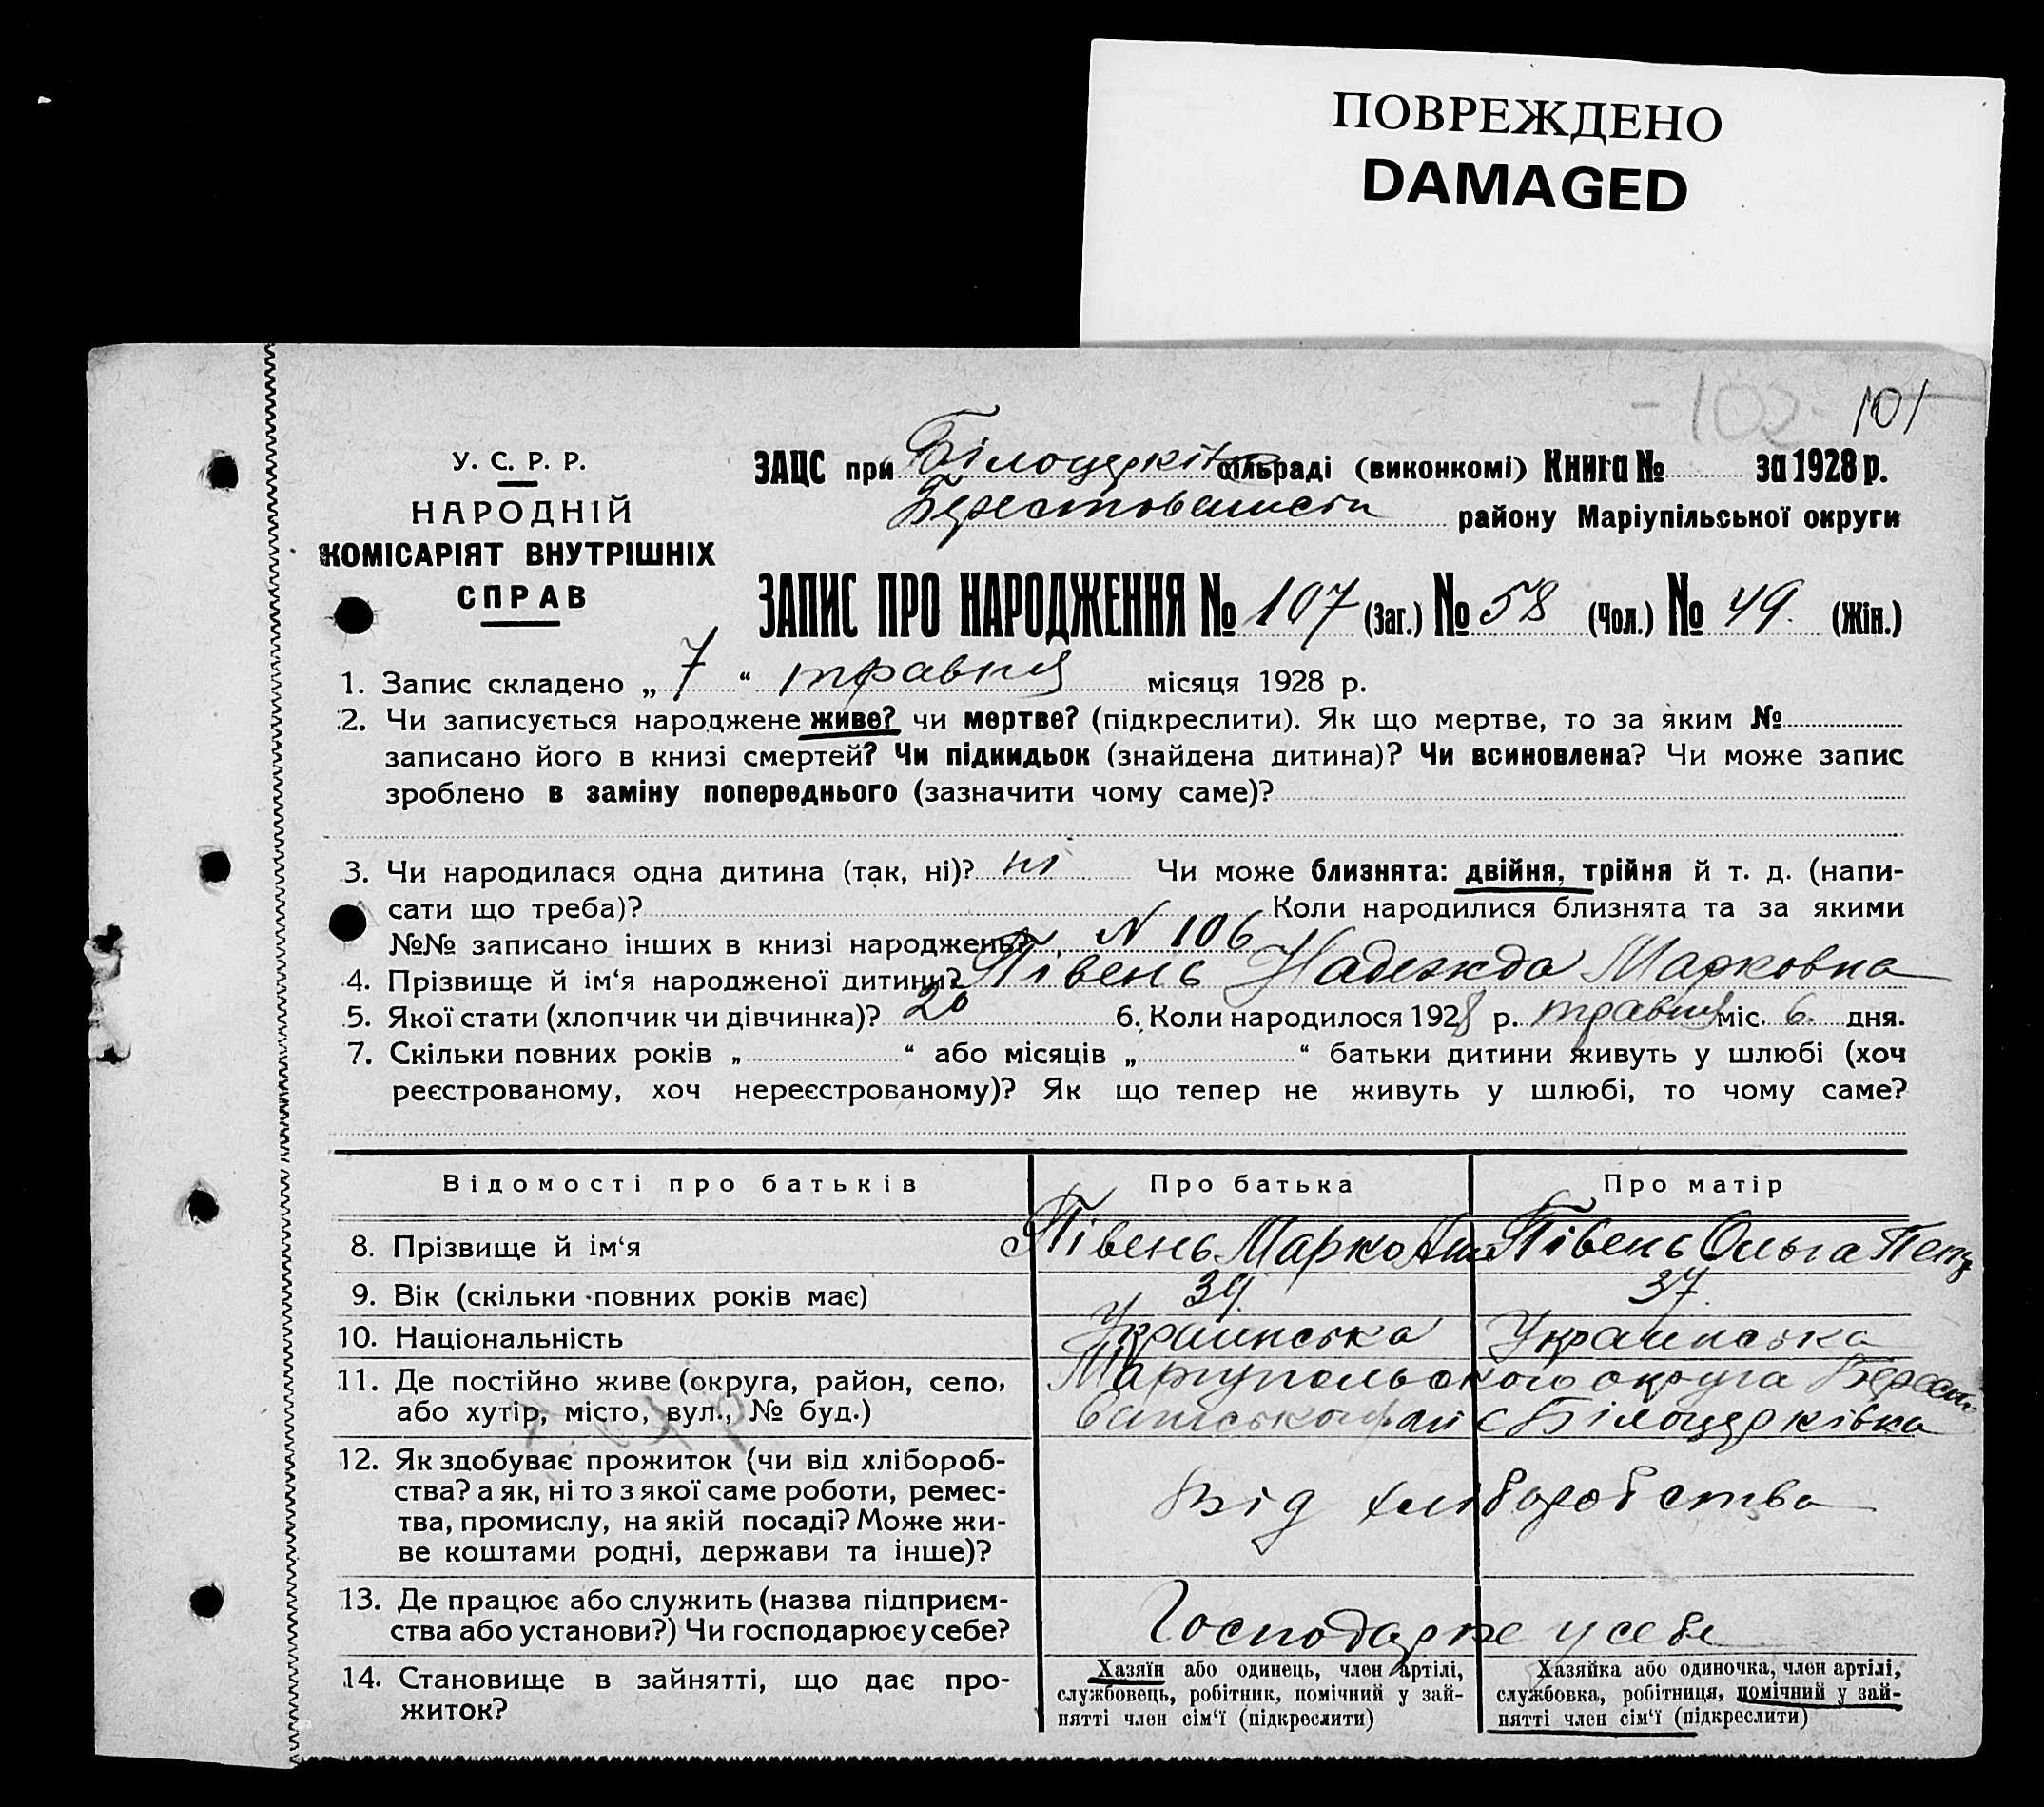 ПОВРЕЖДЕНО
DAMAGED
-102-
101
У. С. Р. Р.
НАРОДНІЙ
КОМІСАРІЯТ ВНУТРІШНІХ
СПРАВ
ЗАЦС при Білоцерків сільраді (виконкомі) Книга № за 1928 р.
району Маріупільської округи
ЗАПИС ПРО НАРОДЖЕННЯ № 107 (Заг.) № 58 (Чол.) № 49. (Жін.)
1. Запис складено „ 7 “ травня місяця 1928 р.
2. Чи записується народжене живе? чи мертве? (підкреслити). Як що мертве, то за яким №
записано його в книзі смертей? Чи підкидьок (знайдена дитина)? Чи всиновлена? Чи може запис
зроблено в заміну попереднього (зазначити чому саме)?
3. Чи народилася одна дитина (так, ні)? ні Чи може близнята: двійня, трійня й т. д. (напи-
сати що треба)? Коли народилися близнята та за якими
№№ записано інших в книзі народжень? N 106
4. Прізвище й ім‘я народженої дитини? Півень Надежда Марковна
5. Якої стати (хлопчик чи дівчинка)? 6. Коли народилося 1928 р. травня міс. 6. дня.
7. Скільки повних років „ “ або місяців „ “ батьки дитини живуть у шлюбі (хоч
реєстрованому, хоч нереєстрованому)? Як що тепер не живуть у шлюбі, то чому саме?
Відомості про батьків Про батька Про матір
8. Прізвище й ім‘я Півень Марко Півень Ольга Петр
9. Вік (скільки повних років має) 39. 37.
10. Національність Украинська Украинська
11. Де постійно живе (округа, район, село,
або хутір, місто, вул., № буд.)
Маріупольского округа Берестоватського рай с Білоцерківка
12. Як здобуває прожиток (чи від хлібороб-
ства? а як, ні то з якої саме роботи, ремес-
тва, промислу, на якій посаді? Може жи-
ве коштами родні, держави та інше)?
Від хліборобства
13. Де працює або служить (назва підприєм-
ства або установи?) Чи господарює у себе?
Господарює у себе
14. Становище в зайнятті, що дає про-
житок?
Хазяїн або одинець, член артілі,
службовець, робітник, помічний у зай-
нятті член сім‘ї (підкреслити)
Хазяйка або одиночка, член артілі,
службовка, робітниця, помічний у зай-
нятті член сім‘ї (підкреслити)